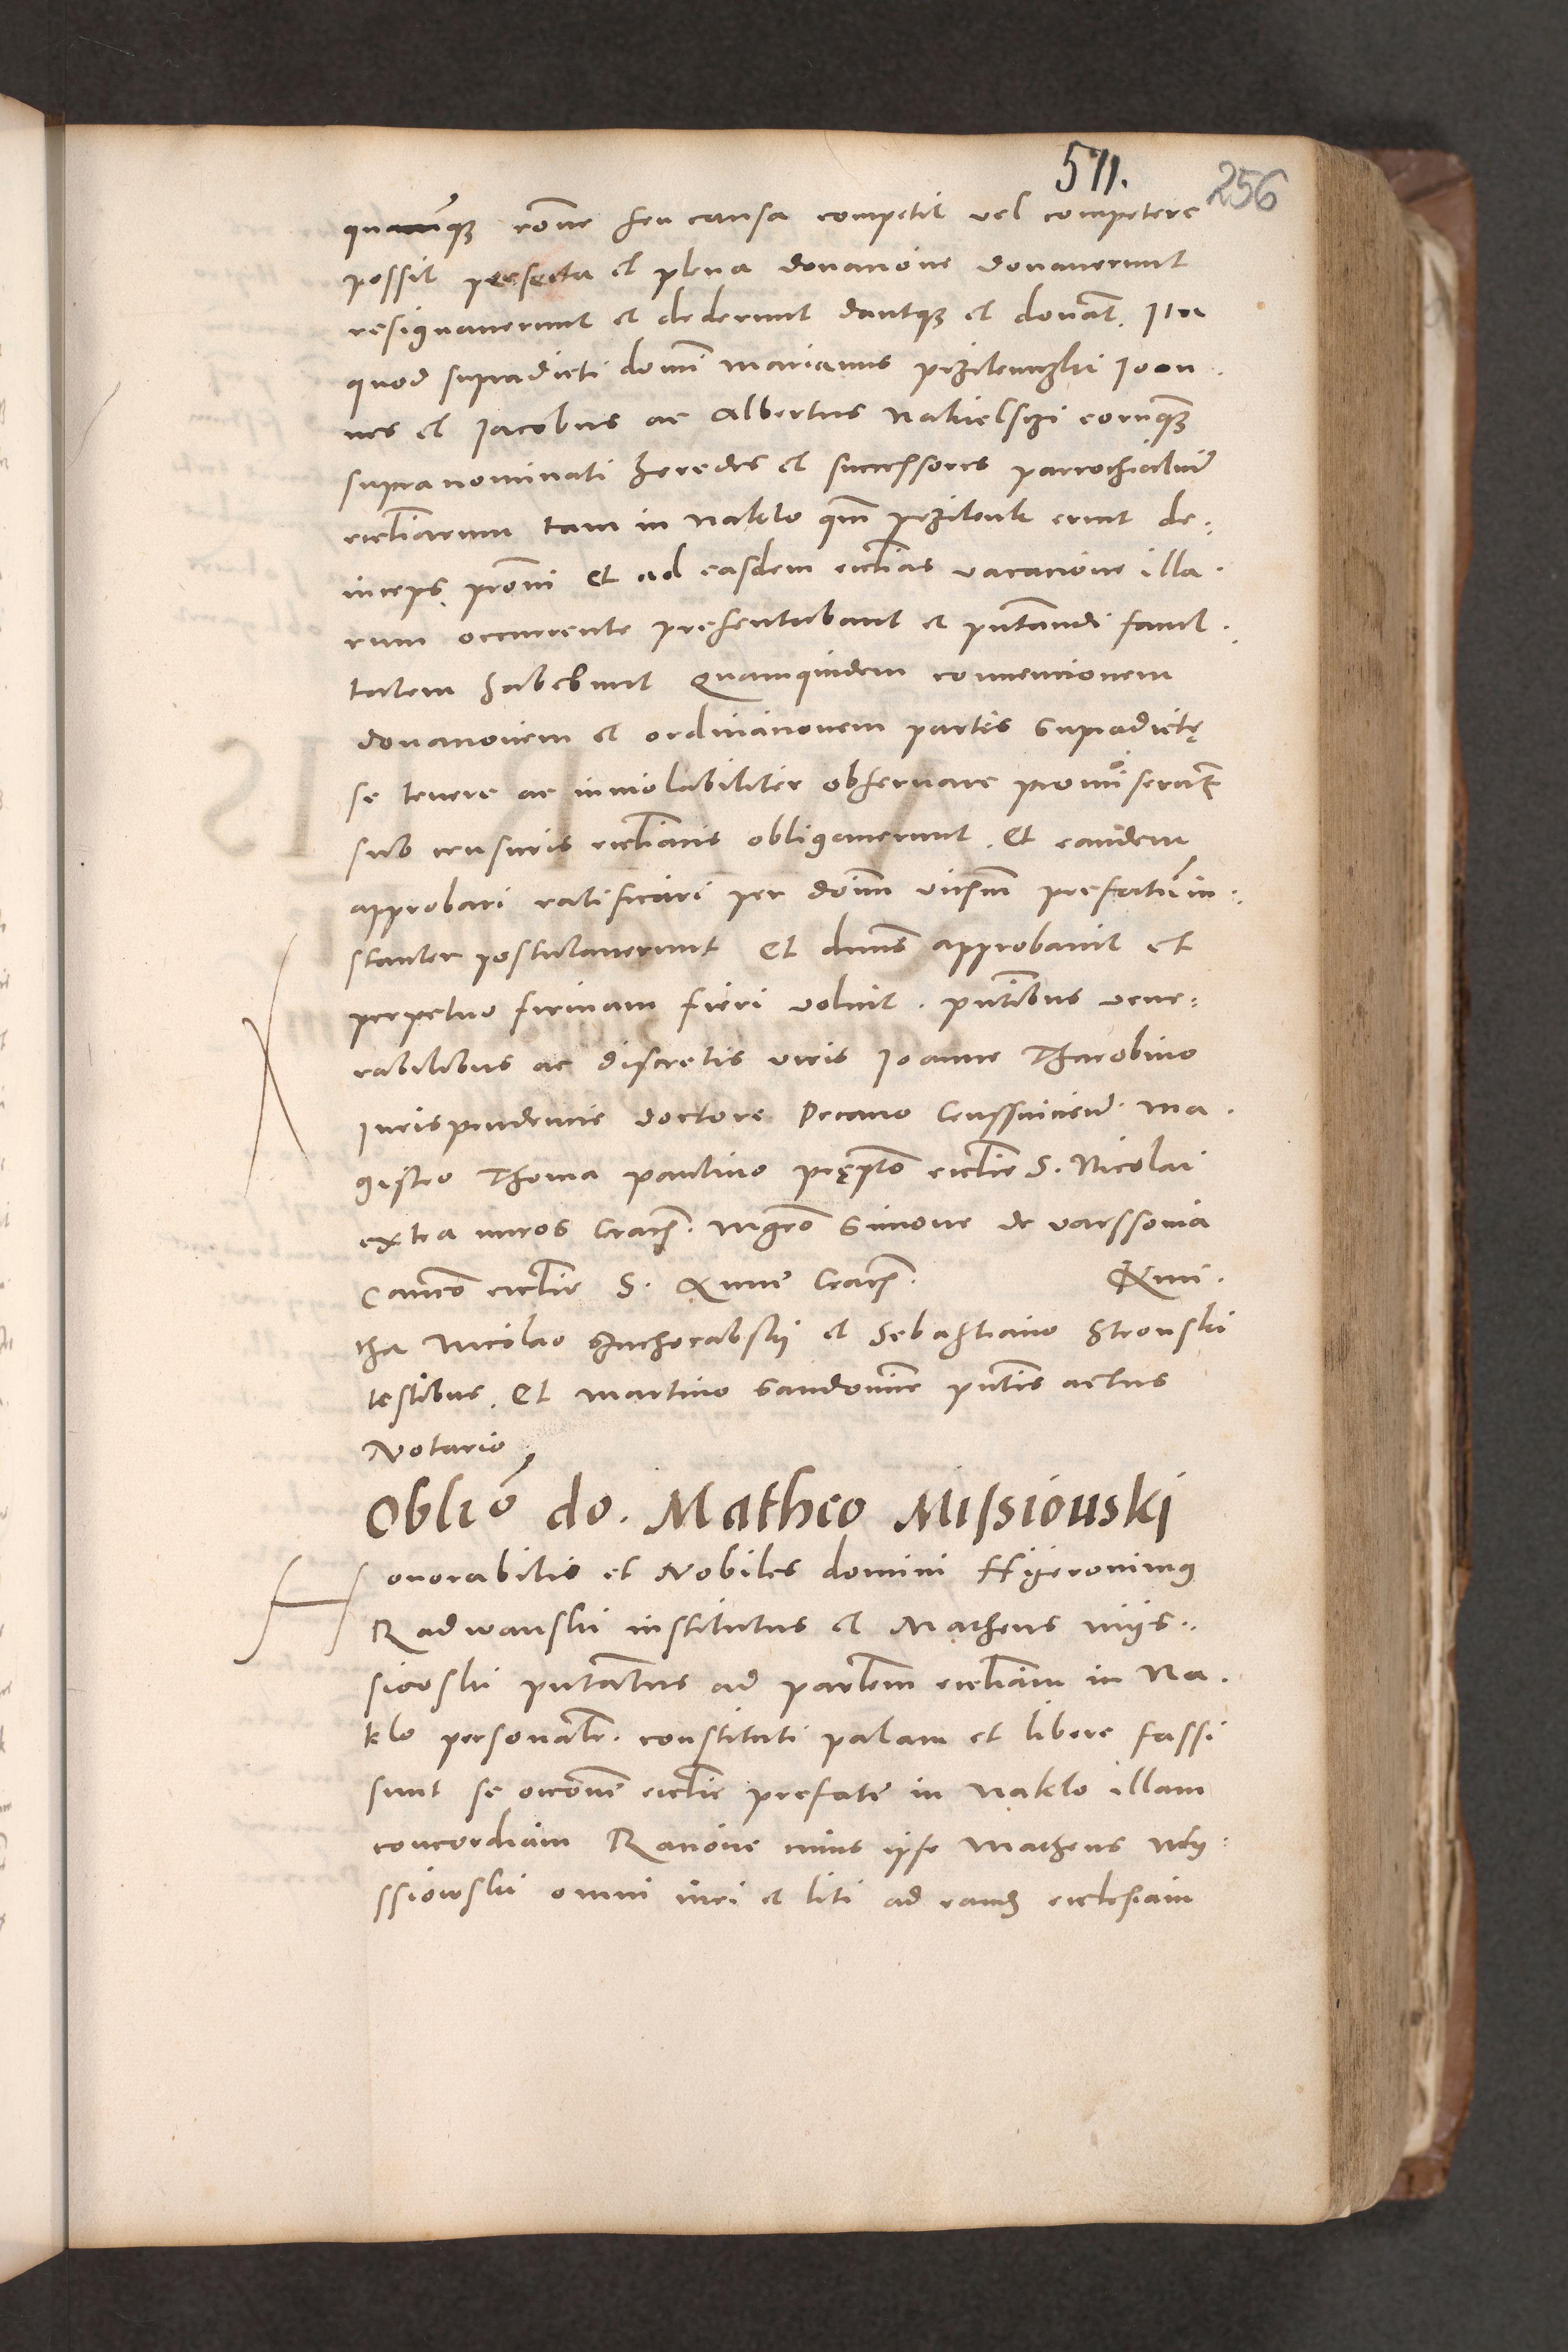 511.
256
quacūqꝫ rōne seu causa competit vel competere
possit perfecta et plena donatione donaverunt
resignaverunt et dederunt dantqꝫ et donāt. Ita
quod supradicti domī Marianus przilenczki Joan
nes et Jacobus ac Albertus Nakielsczi eorūqꝫ
supranominati heredes et successores parrochialiū
eccliarum tam in naklo qm̄ przilenk erunt de:
inceps prōni et ad easdem ecclias vacatione illa.
rum occurrente presentabunt et pn̄tandi facul.
tatem habebunt Quamquidem convencionem
donationem et ordinationem partes supradictę
se tenere ac inviolabiliter observare promiserūt
sub censuris ecclīacis obligaverunt. Et eandem
approbari ratificari per dom̄ vicesm̄ prefatū in:
stanter postulaverunt Et dnūs approbavit et
perpetuo firmam fieri voluit. pn̄tibus vene:
rabilibus ac discretis viris Joanne Tharobino
Jurisprudencie doctore Decano Ma.
gistro Thoma paulino pręp̄to ecclie S. Nicolai
extra muros Crac. Mgr̄o Simone de varssovia
Canco ecclie S. Anne Crac.
tha Nicolao et Sebastiano Stronski
testibus. Et Martino pn̄tis actus
Notario
Obliō do. Matheo Missiouski
Honorabilis et Nobiles domini Hyeronimus
Radwanski institutus et Matheus mijs:
siovski pn̄tatus ad parlem eccliam in Na.
klo personalr. constituti palam et libere fassi
sunt se occōne ecclie prefate in Naklo illam
concordiam Ratione cuius ipse Matheus Mij:
ssiowski omni iuri et liti ad eandē ecclesiam